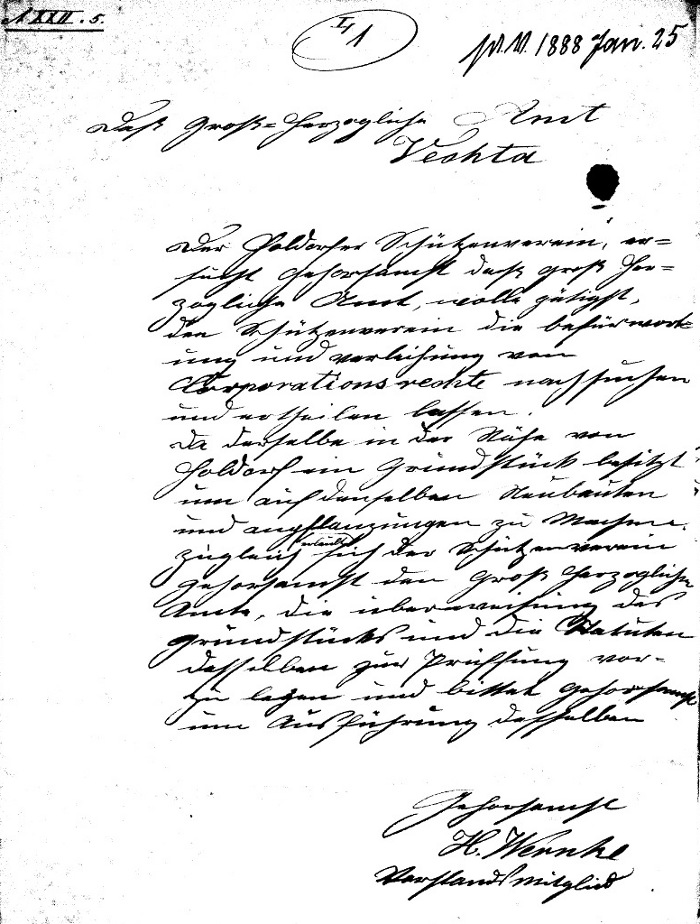 N XXII. 5.
1888 Jan. 25
Daß Groß=Herzogliche Amt
Vechta
Der Holdorfer Schützenverein, er=
sucht Gehorsamst daß groß Her=
zogliche Amt, wolle gütigst,
den Schützenverein die befürwort=
ung und verleihung von
Corporationsrechte nachsuchen
und ertheilen lassen.
Da derselbe in der Nähe von
Holdorf ein Grundstück besitzt
um auf denselben Neubauten
und anpflanzungen zu Machen.
zugleich erlaubt sich der Schützenverein
gehorsamst den Groß Herzogliche
Amte, die ueberweisung des
Grundstücks und die Statuten
desselben zur Prüffung vor=
zu legen und bittet gehorsamst
um Ausführung desselben
Gehorsamst
H. Wernke
Vorstandsmitglied